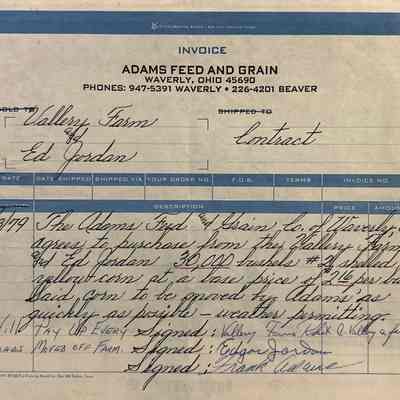 INVOICE
ADAMS FEED AND GRAIN
WAVERLY, OHIO 45690
PHONES: 947-5391 WAVERLY • 226-4201 BEAVER
OLD TO
SHIPPED TO
Vallery Farm
and
Contract
Ed Jordan
DATE DATE SHIPPED SHIPPED VIA YOUR ORDER NO. F.O.B. TERMS INVOICE NO.
DESCRIPTION PRICE AMOU
/79 The Adams Feed and Grain Co. of Waverly
agrees to purchase from the Vallery Farm
and Ed Jordan 30,000 bushels #2 shelled
yellow corn at a base price of
Said corn to be moved by Adams as
quickly as possible - weather permitting.
PAY UP EVERY Signed: Vallery Farm
MOVED OFF FARM. Signed: Edgar Jordan
Signed: Frank Adams